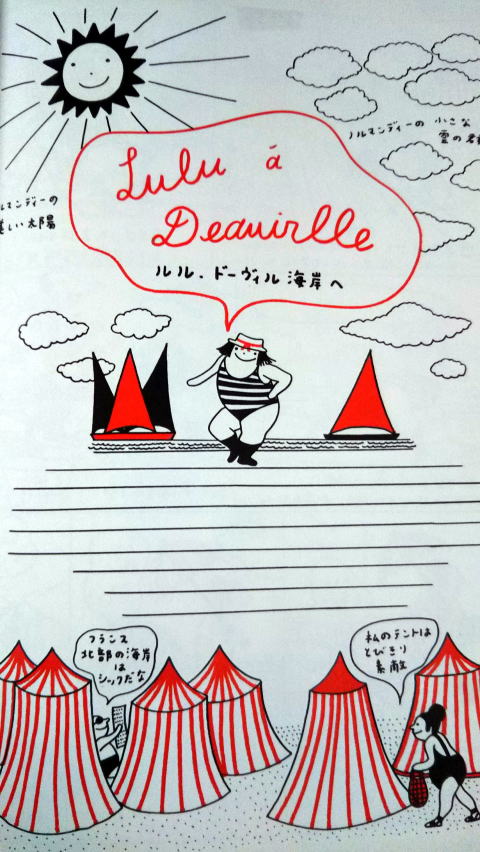 ノルマンディーの 小さな
雲の君
ルマンディーの
美しい太陽
Lulu á
Deauirlle
ルル、ドーヴィル海岸へ
フランス
北部の海岸
は
シックだな
私のテントは
とびきり
素敵